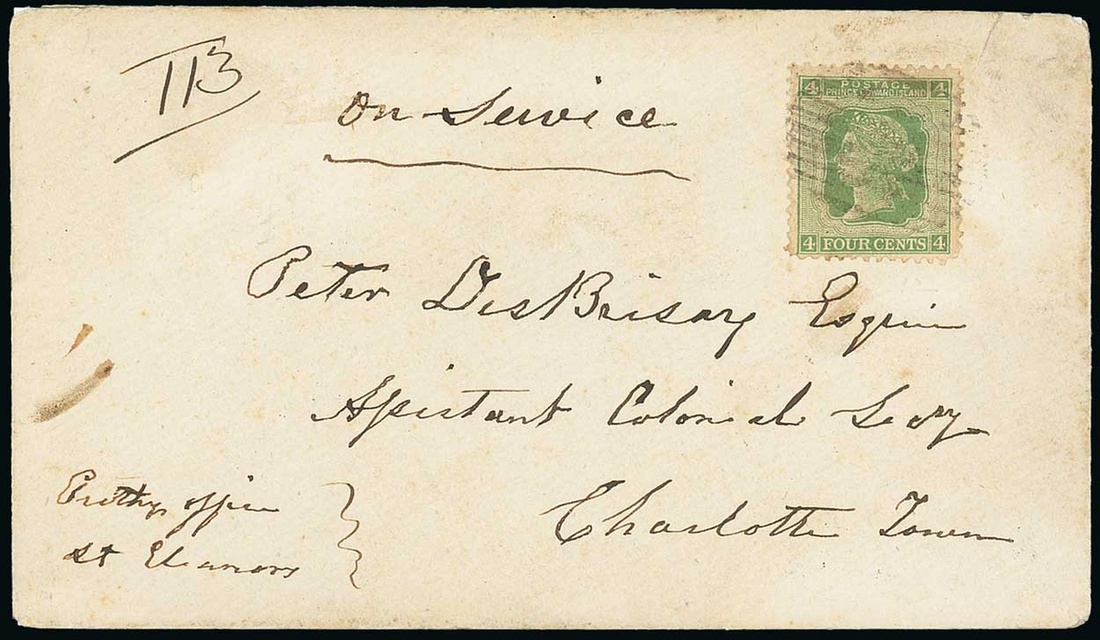 113
On Service
4 POSTAGE 4
PRINCE EDWARD ISLAND
4 FOUR CENTS 4
Peter DesBrisay Esquire
Assistant Colonial Secy
Charlotte Town
office
St Eleanors